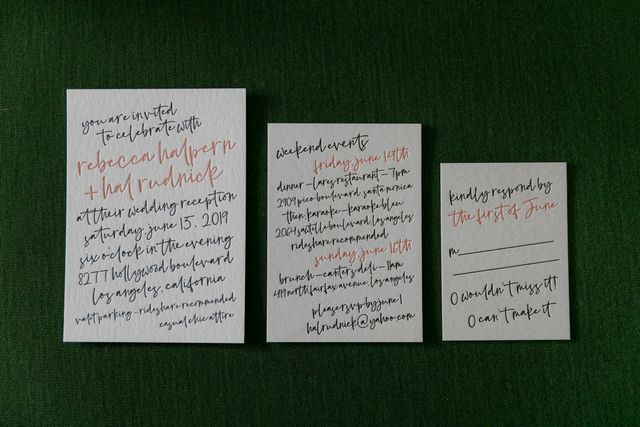 you are invited
to celebrate with
rebecca halpern
+ hal rudnick
at their wedding reception
saturday, june 15, 2019
six o'clock in the evening
8277 hollywood boulevard
los angeles, california
valet parking - rideshare recommended
casual chic attire
weekend events
friday, june 14th
dinner - lares restaurant - 7pm
2909 pico boulevard, santa monica
then, karaoke - karaoke bleu
2064 sawtelle boulevard, los angeles
rideshare recommended
sunday, june 16th
brunch - canter's deli - 11am
419 north fairfax avenue, los angeles
please rsvp by june 1
halrudnick@yahoo.com
kindly respond by
the first of June
m
O wouldn't miss it!
O can't make it